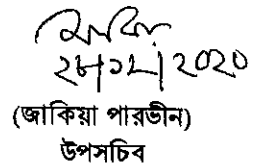 ২৮|১২|২০২০
(জাকিয়া পারভীন)
উপসচিব